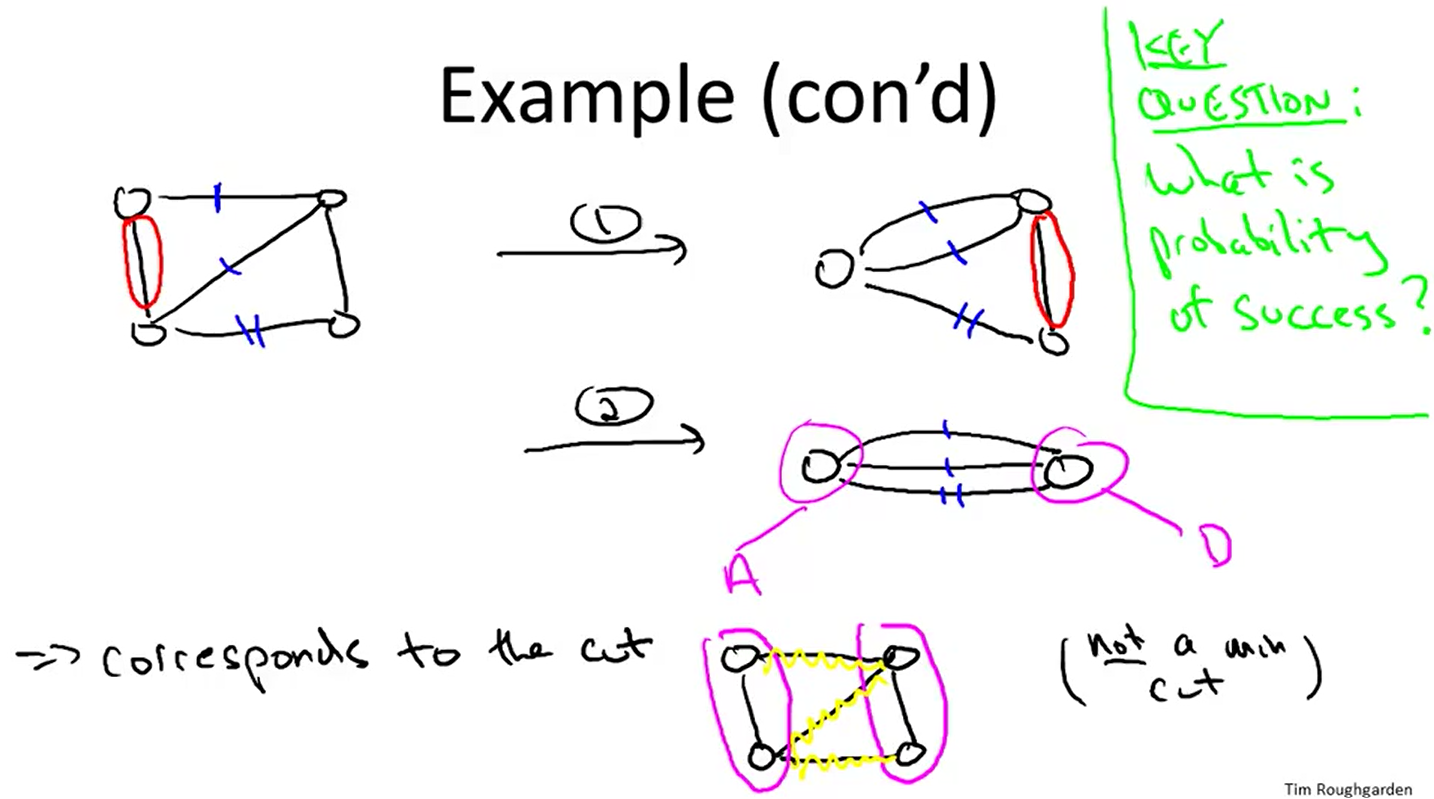 Example (con’d)
KEY
QUESTION:
What is
probability
of success?
1
2
A
B
=> corresponds to the cut
(not a min
cut)
Tim Roughgarden